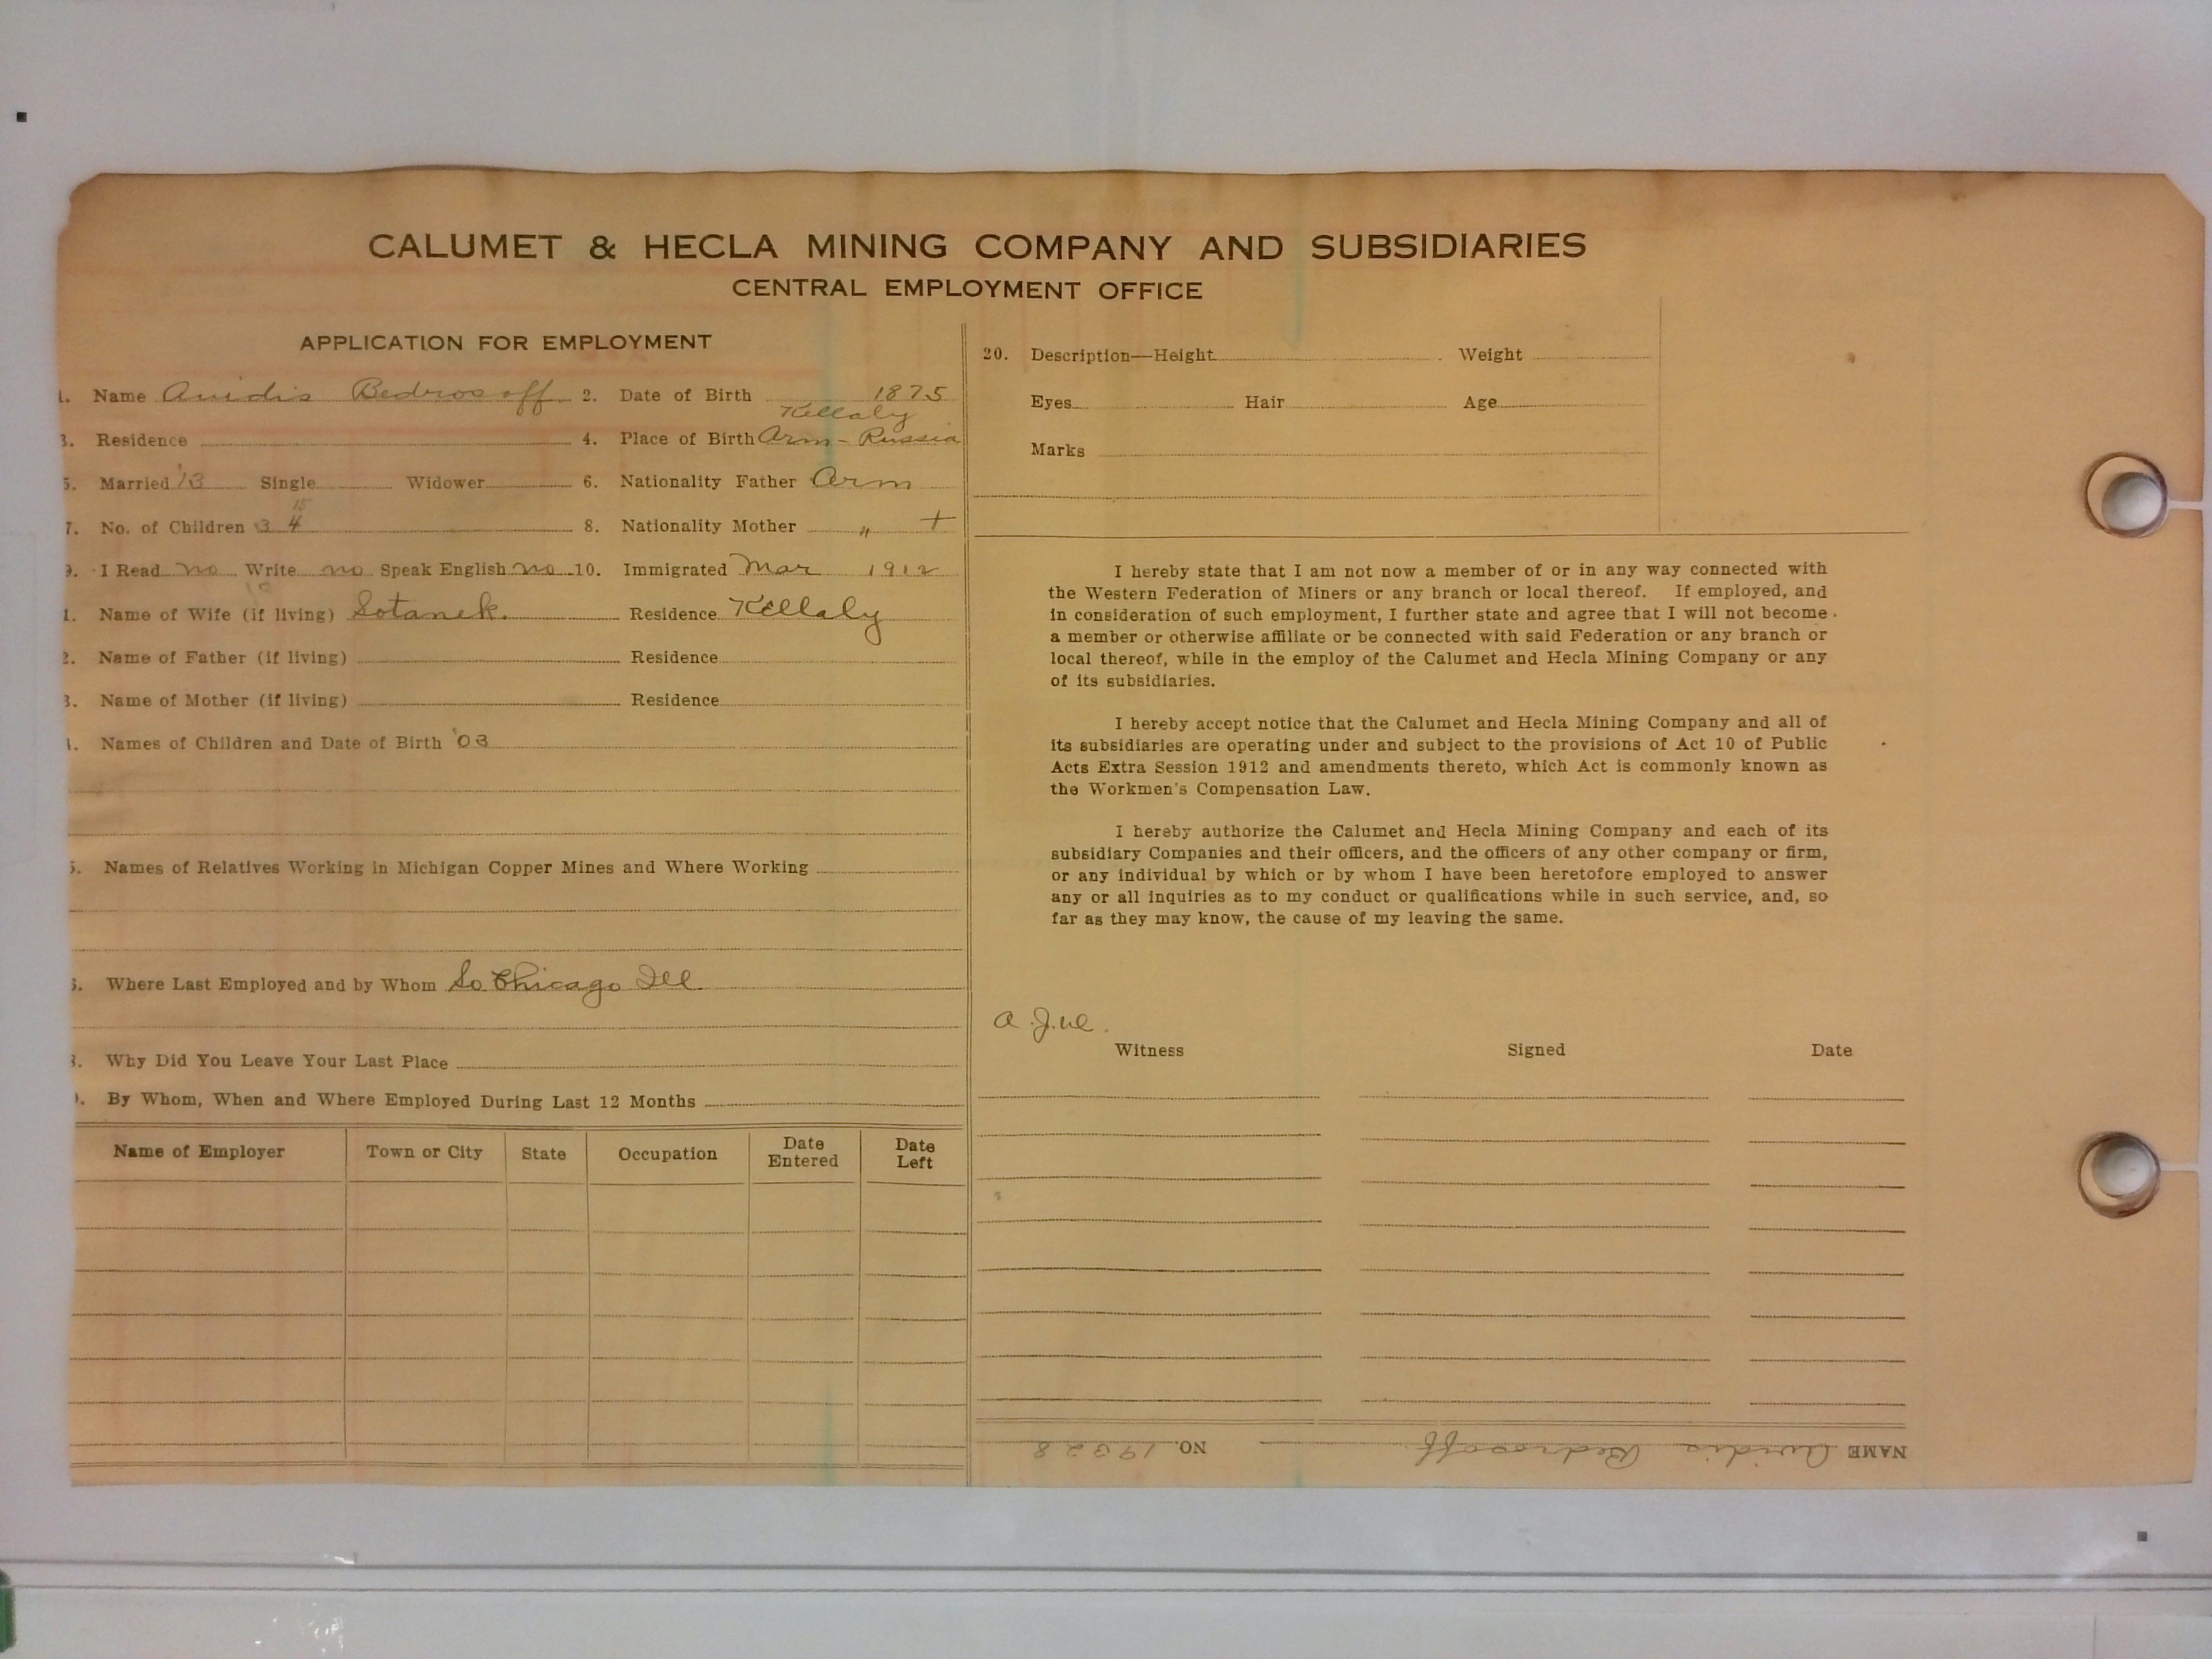 CALUMET & HECLA MINING COMPANY AND SUBSIDIARIES
CENTRAL EMPLOYMENT OFFICE
APPLICATION FOR EMPLOYMENT
1. Name Avidis Bedrosoff 2. Date of Birth 1875
Kellaly
3. Residence 4. Place of Birth Arm - Russia
5. Married '13 Single Widower 6. Nationality Father Arm
15
7. No. of Children 3 4 8. Nationality Mother " +
9. I Read no Write no Speak English no 10. Immigrated Mar 1912
1. Name of Wife (if living) Sotanek. Residence Kellaly
2. Name of Father (if living) Residence
3. Name of Mother (if living) Residence
4. Names of Children and Date of Birth '03
5. Names of Relatives Working in Michigan Copper Mines and Where Working
6. Where Last Employed and by Whom So Chicago Ill
8. Why Did You Leave Your Last Place
9. By Whom, When and Where Employed During Last 12 Months
Name of Employer Town or City State Occupation Date Entered Date Left
20. Description—Height Weight
Eyes Hair Age
Marks
I hereby state that I am not now a member of or in any way connected with
the Western Federation of Miners or any branch or local thereof. If employed, and
in consideration of such employment, I further state and agree that I will not become
a member or otherwise affiliate or be connected with said Federation or any branch or
local thereof, while in the employ of the Calumet and Hecla Mining Company or any
of its subsidiaries.
I hereby accept notice that the Calumet and Hecla Mining Company and all of
its subsidiaries are operating under and subject to the provisions of Act 10 of Public
Acts Extra Session 1912 and amendments thereto, which Act is commonly known as
the Workmen's Compensation Law.
I hereby authorize the Calumet and Hecla Mining Company and each of its
subsidiary Companies and their officers, and the officers of any other company or firm,
or any individual by which or by whom I have been heretofore employed to answer
any or all inquiries as to my conduct or qualifications while in such service, and, so
far as they may know, the cause of my leaving the same.
Witness Signed Date
NAME Avidis Bedrosoff NO. 19328